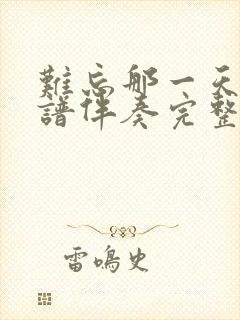 難忘那一天
譜伴奏完整
雷鳴史